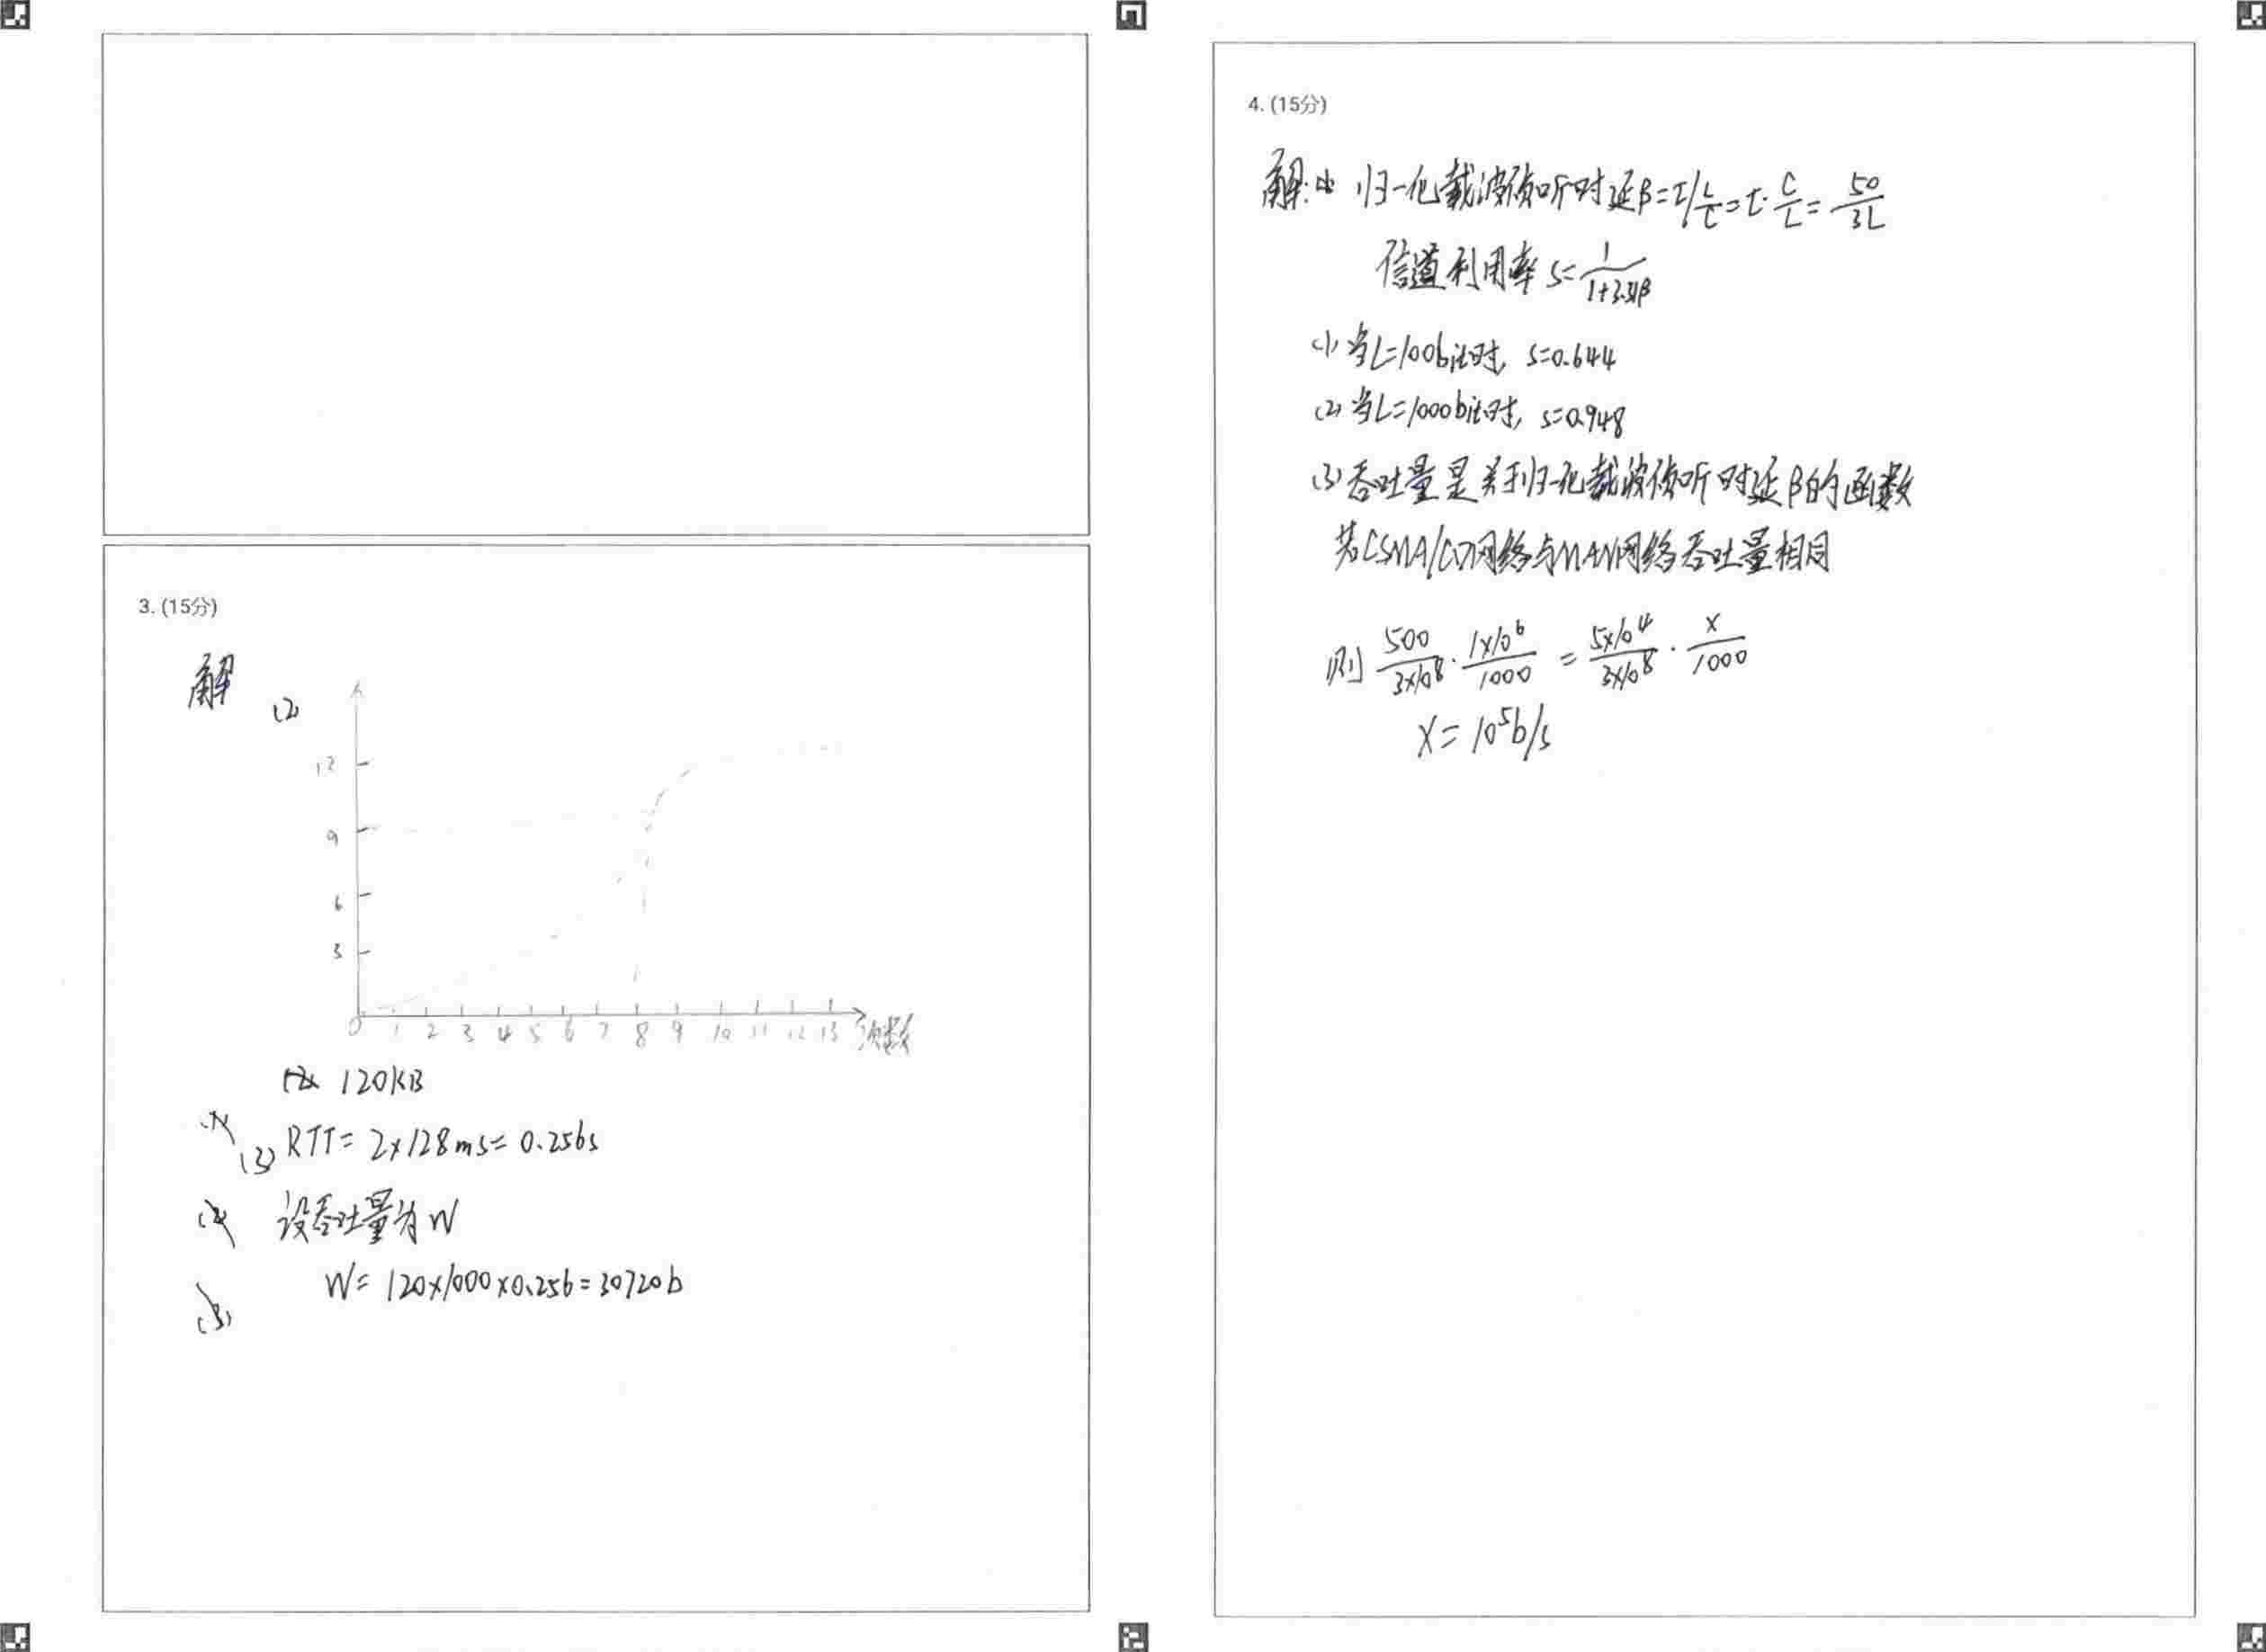 3. (15分)
解
(2)
12
9
6
3
0 1 2 3 4 5 6 7 8 9 10 11 12 13 次数
120KB
(3) RTT = 2×128ms = 0.256s
设吞吐量为W
W = 120×1000×0.256 = 30720b
(3)
4. (15分)
解: 归一化载波侦听时延β = τ/(L/C) = τ·C/L = 50/3L
信道利用率 S = 1/(1+3.31β)
(1) 当L=100bit时, S=0.644
(2) 当L=1000bit时, S=0.948
(3) 吞吐量是关于归一化载波侦听时延β的函数
若CSMA/CD网络与WAN网络吞吐量相同
则 500/(3×10^8) · (1×10^6)/1000 = (5×10^4)/(3×10^8) · x/1000
X = 10^5b/s